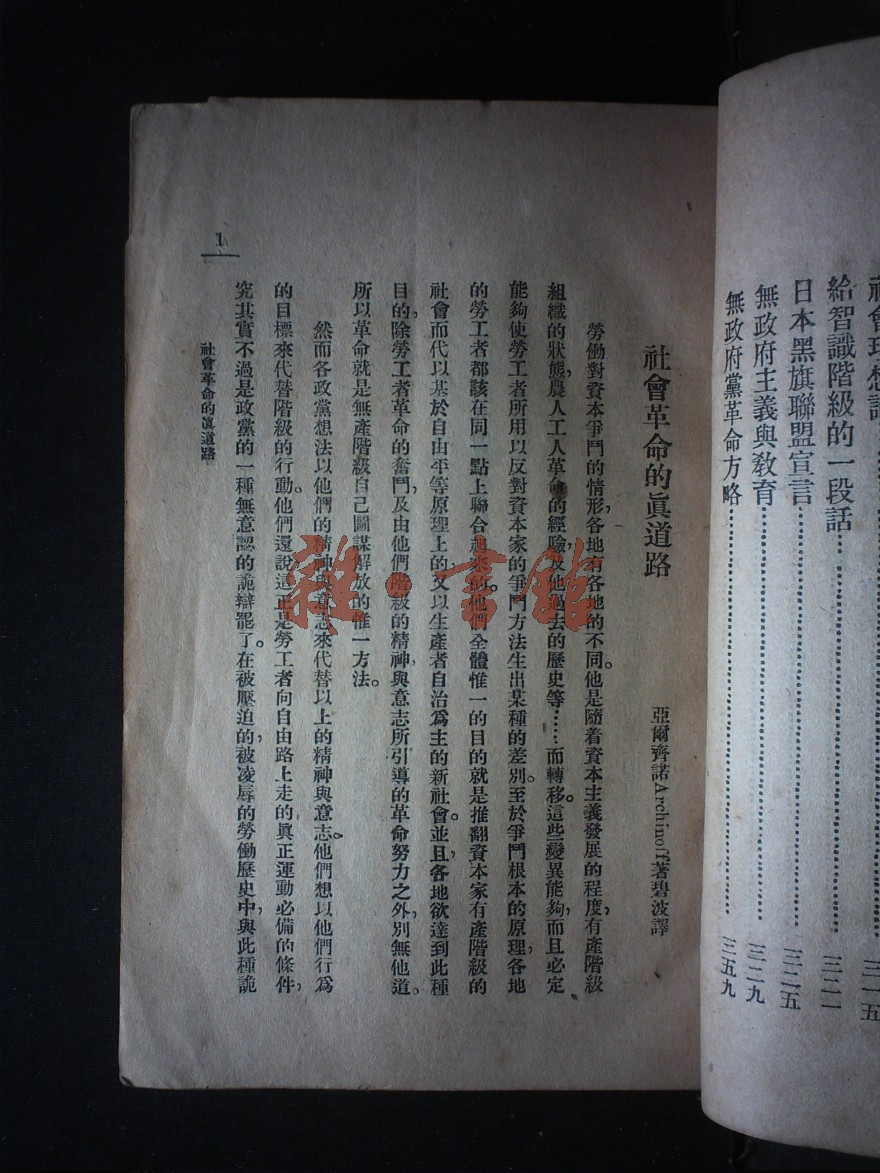 給智識階級的一段話……三二一
日本黑旗聯盟宣言……三二五
無政府主義與教育……三二九
無政府黨革命方略……三五九
社會革命的眞道路
亞爾齊諾Archinoff著碧波譯
勞働對資本爭鬥的情形，各地有各地的不同。他是隨着資本主義發展的程度，有產階級
組織的狀態，農人工人革命的經驗，及他過去的歷史等……而轉移。這些變異能夠，而且必定
能夠使勞工者所用以反對資本家的爭鬥方法生出某種的差別。至於爭鬥根本的原理，各地
的勞工者都該在同一點上聯合起來的。他們全體惟一的目的就是推翻資本家有產階級的
社會而代以基於自由平等原理上的，又以生產者自治爲主的新社會。並且，各地欲達到此種
目的，除勞工者革命的奮鬥，及由他們階級的精神，與意志所引導的革命努力之外，別無他道。
所以革命就是無產階級自己圖謀解放的惟一方法。
然而各政黨想法以他們的精神與意志來代替以上的精神與意志。他們想以他們行爲
的目標來代替階級的行動。他們還說這正是勞工者向自由路上走的眞正運動必備的條件，
究其實不過是政黨的一種無意認的詭辯罷了。在被壓迫的，被凌辱的勞働歷史中，與此種詭
社會革命的眞道路
1
雜·書館